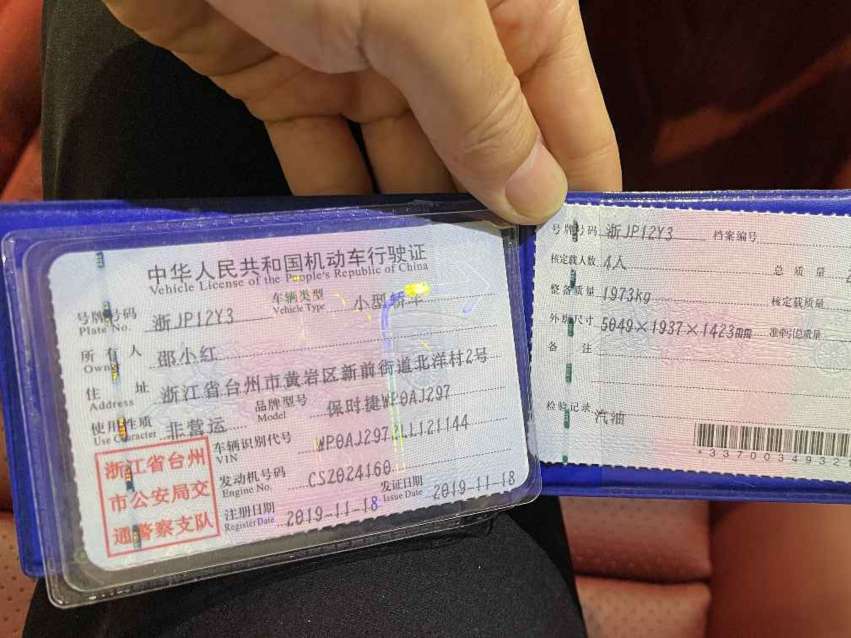 中华人民共和国机动车行驶证
Vehicle License of the People's Republic of China
号牌号码 浙JP12Y3 车辆类型 小型轿车
Plate No. Vehicle Type
所有人 邵小红
Owner
住址 浙江省台州市黄岩区新前街道北洋村2号
Address
使用性质 非营运 品牌型号 保时捷WP0AJ297
Use Character Model
浙江省台州
市公安局交
通警察支队
车辆识别代号 WP0AJ2972LL121144
VIN
发动机号码 CS2024160
Engine No.
注册日期 2019-11-18 发证日期 2019-11-18
Register Date Issue Date
号牌号码 浙JP12Y3 档案编号
核定载人数 4人 总质量
整备质量 1973kg 核定载质量
外廓尺寸 5049×1937×1423mm 准牵引总质量
备注
检验记录 汽油
*33700349321